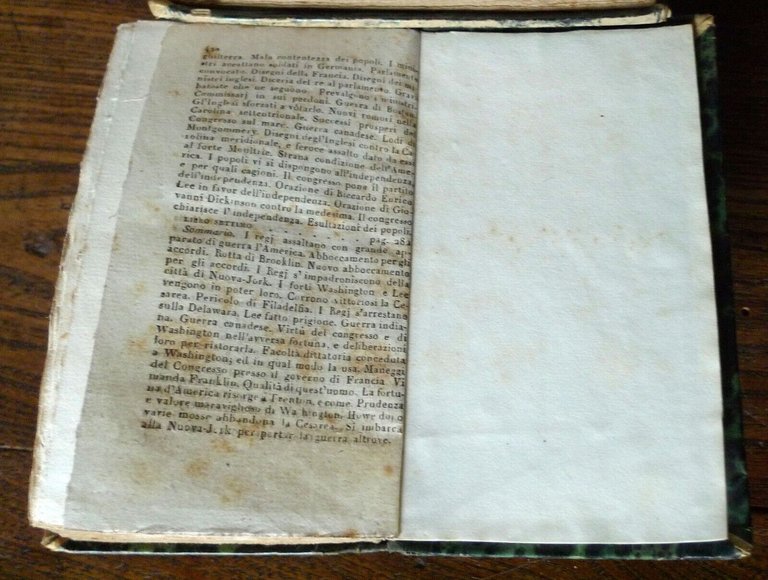 ghilterra. Mala contentezza dei popoli. I mini-
stri accattano soldati in Germania. Parlamento
convocato. Disegni della Francia. Disegni dei mi-
nistri inglesi. Diceria del re al parlamento. Gravi
batoste che ne seguono. Prevalgono i ministri.
Commissarj in sui perdoni. Guerra di Boston.
Gl'Inglesi sforzati a votarlo. Nuovi romori nella
Carolina settentrionale. Successi prosperi del
Congresso sul mare. Guerra canadese. Lodi di
Montgommery. Disegni degl'Inglesi contro la Ca-
rolina meridionale, e feroce assalto dato da essi
al forte Moultrie. Strana condizione dell'Ame-
rica. I popoli vi si dispongono all'independenza,
e per quali cagioni. Il congresso pone il partito
dell'independenza. Orazione di Riccardo Enrico
Lee in favor dell'independenza. Orazione di Gio-
vanni Dickinson contro la medesima. Il congresso
chiarisce l'independenza. Esultazioni dei popoli.
LIBRO SETTIMO . . . . . . . . pag. 282
Sommario. I regj assaltano con grande ap-
parato di guerra l'America. Abboccamento per gli
accordi. Rotta di Brocklin. Nuovo abboccamento
per gli accordi. I Regj s'impadroniscono della
città di Nuova-Jork. I forti Washington e Lee
vengono in poter loro. Corrono vittoriosi la Ce-
sarea. Pericolo di Filadelfia. I Regj s'arrestano
sulla Delawara. Lee fatto prigione. Guerra india-
na. Guerra canadese. Virtù del congresso e di
Washington nell'avversa fortuna, e deliberazioni
loro per ristorarla. Facoltà dittatoria conceduta
a Washington, ed in qual modo la usa. Maneggi
del Congresso presso il governo di Francia. Vi
manda Franklin. Qualità di quest'uomo. La fortu-
na d'America risorge a Trenton, e come. Prudenza
e valore maraviglioso di Wa hington. Howe dopo
varie mosse abbandona la Cesarea. Si imbarca
alla Nuova-Jork per portar la guerra altrove.